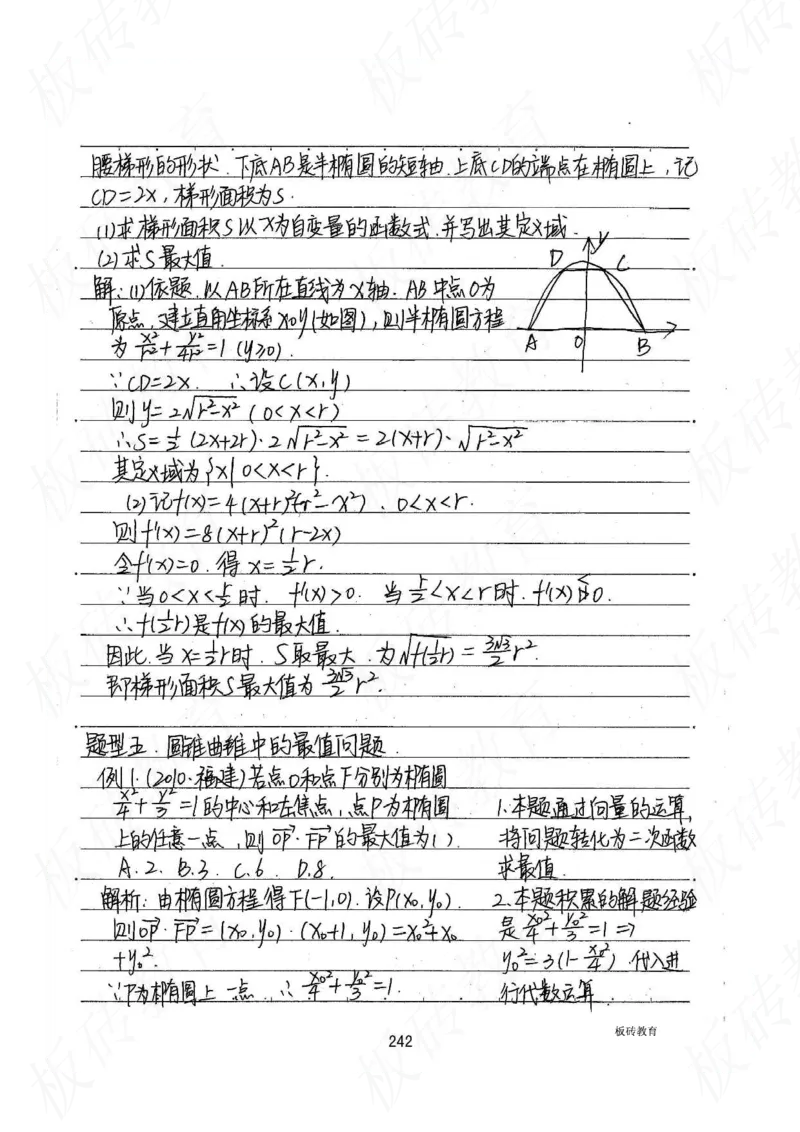 腰梯形的形状.下底AB是半椭圆的短轴.上底CD的端点在椭圆上,记
CD=2x,梯形面积为S.
(1)求梯形面积S以x为自变量的函数式.并写出其定义域.
(2)求S最大值.
解:(1)依题.以AB所在直线为x轴.AB中点O为
原点,建立直角坐标系xoy(如图),则半椭圆方程
为x²/r²+y²/4r²=1 (y≥0).
∵CD=2x. ∴设C(x,y)
则y=2√r²-x² (0<x<r)
∴S=½(2x+2r)·2√r²-x² = 2(x+r)·√r²-x²
其定义域为{x|0<x<r}.
(2)记f(x)=4(x+r)²(r²-x²). 0<x<r.
则f'(x)=8(x+r)²(r-2x)
令f'(x)=0.得x=½r.
∵当0<x<r/2时. f'(x)>0. 当r/2<x<r时.f'(x)<0.
∴f(½r)是f(x)的最大值.
因此.当x=½r时.S取最大.为√f(½r)=3√3/2 r².
即梯形面积S最大值为3√3/2 r².
D
y
C
A
O
B
题型五.圆锥曲线中的最值问题.
例1.(2010·福建)若点O和点F分别为椭圆
x²/4+y²/3=1的中心和左焦点,点P为椭圆
上的任意一点,则OP·FP的最大值为( )
A.2. B.3. C.6. D.8.
解析:由椭圆方程得F(-1,0).设P(x₀,y₀).
则OP·FP=(x₀,y₀)·(x₀+1,y₀)=x₀²+x₀
+y₀².
∵P为椭圆上一点.∴x₀²/4+y₀²/3=1.
1.本题通过向量的运算,
将问题转化为二次函数
求最值.
2.本题积累的解题经验
是x₀²/4+y₀²/3=1⇒
y₀²=3(1-x₀²/4).代入进
行代数运算.
242
板砖教育